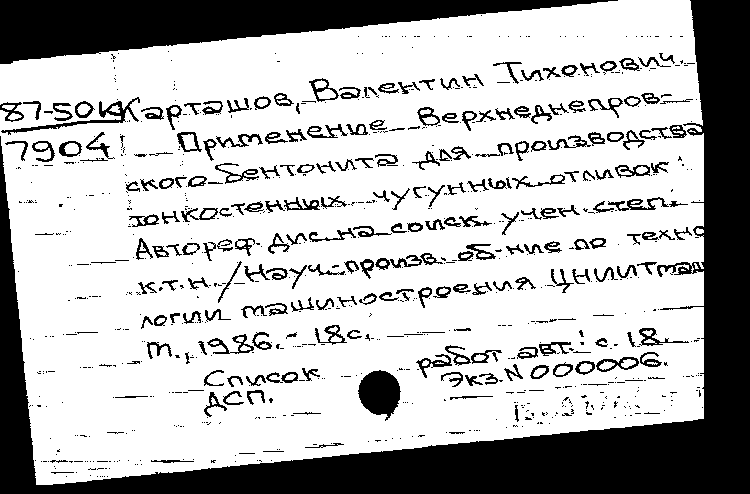 87-50К Карташов, Валентин Тихонович.
7904 Применение Верхнеднепров-
ского бентонита для производства
тонкостенных чугунных отливок:
Автореф. дис. на соиск. учен. степ.
к.т.н. / Науч.-произв. об-ние по техно
логии машиностроения ЦНИИТмаш
М., 1986. - 18с.
Список работ авт.: с. 18.
ДСП. Экз. N 000006.